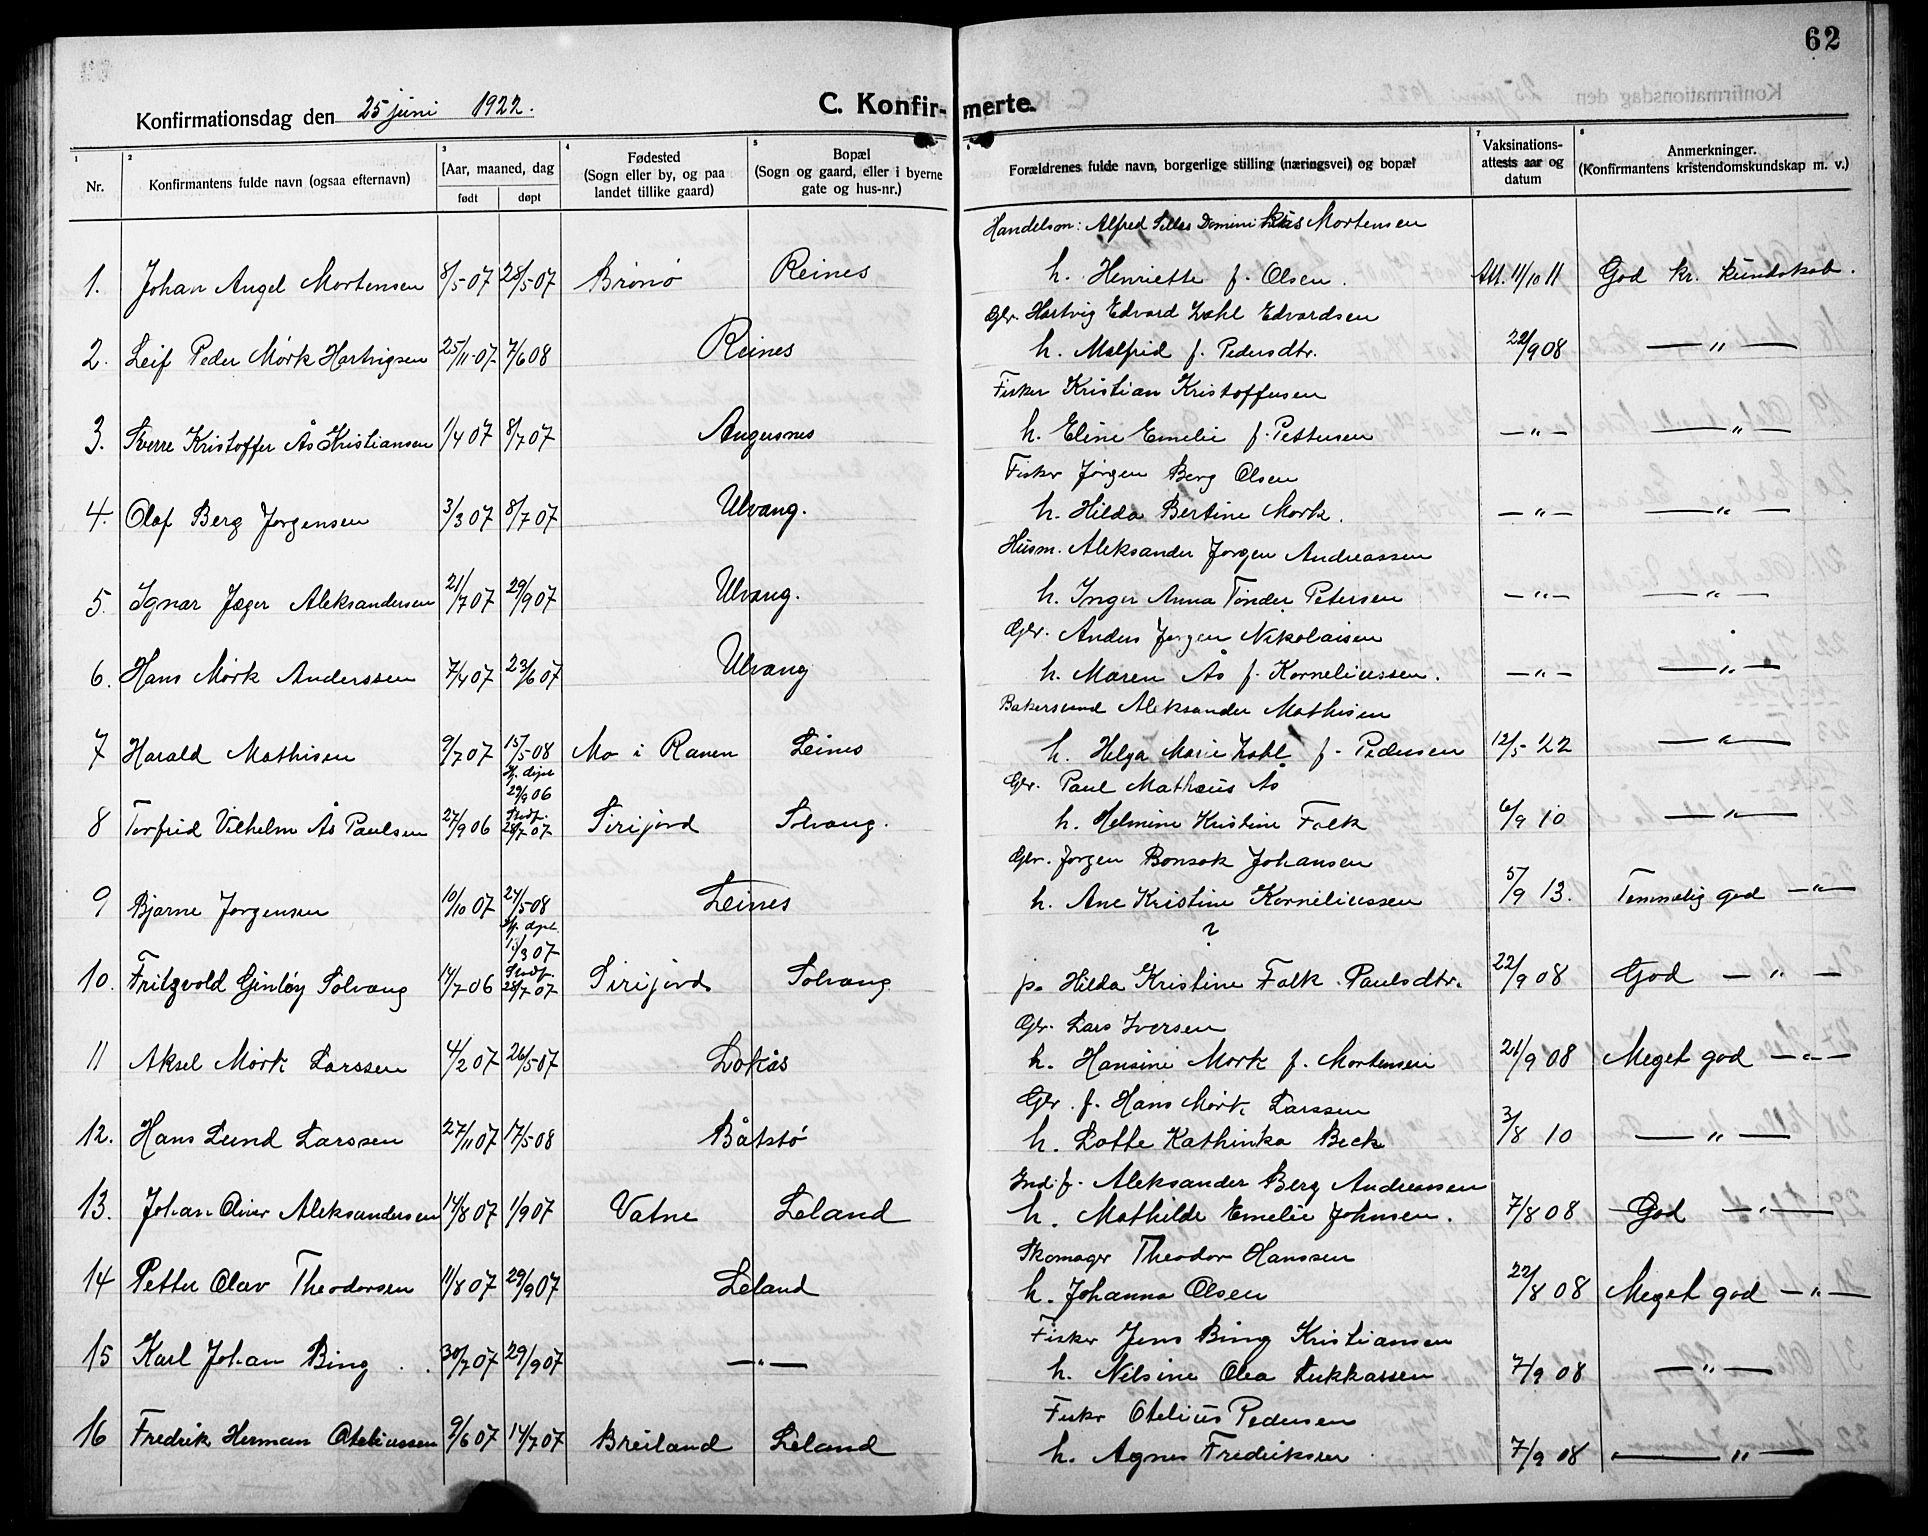 62
Konfirmationsdag den 25 juni 1922.
C. Konfir-merte.
1 2 3 4 5 6 7 8
Nr.
Konfirmantens fulde navn (ogsaa efternavn)
Aar, maaned, dag
født døpt
Fødested
(Sogn eller by, og paa
landet tillike gaard)
Bopæl
(Sogn og gaard, eller i byerne
gate og hus-nr.)
Forældrenes fulde navn, borgerlige stilling (næringsvei) og bopæl
Vaksinations-
attests aar og
datum
Anmerkninger.
(Konfirmantens kristendomskundskap m. v.)
Handelsm: Alfred Dominikus Mortensen
1. Johan Angel Mortensen 8/5-07 28/5-07 Brønø Reines h. Henriette f. Olsen. Att. 11/10 11 God kr. kundskab.
Gbr. Hartvig Edvard Zahl Edvardsen
2. Leif Peder Mørk Hartvigsen 25/11-07 7/6 08 Reines h. Malfrid f. Pedersdtr. 22/9 08 — " —
Fisker Kristian Kristoffersen
3. Sverre Kristoffer Ås Kristiansen 1/4 07 8/7 07 Angersnes h. Eline Emelie f. Pettersen — " — — " —
Fisker Jørgen Berg Olsen
4. Olaf Berg Jørgensen 3/3 07 8/7 07 Ulvang. h. Hilda Bertine Mørk. — " — — " —
Husm. Aleksander Jørgen Andreassen
5. Ignar Jæger Aleksandersen 21/7 07 29/9 07 Ulvang. h. Inger Anna Tønder Petersen — " — — " —
Gbr. Anders Jørgen Nikolaisen
6. Hans Mørk Anderssen 7/4 07 23/6 07 Ulvang h. Maren Ås f. Korneliussen. — " — — " —
Bakersvend Aleksander Mathisen
7 Harald Mathisen 9/7 07 15/5-08 Mo i Ranen Leines h. Helga Marie Zahl f. Pedersen 12/5-22 — " —
Hj. døpt
29/9 06
Gbr. Paul Mathæus Ås
Stadf.
8 Torfrid Vilhelm Ås Paulsen 27/9 06 28/7 07 Sirijord Solvang. h. Helmine Kristine Falk 6/9 10 — " —
Gbr. Jørgen Bonsak Johansen
9 Bjarne Jørgensen 10/10 07 24/5-08 Leines h. Ane Kristine Korneliussen 5/9 13. Temmelig god — " —
Hj. døpt.
?
Stadf.
10. Fritzvold Solvang 14/7 06 28/7 07 Sirijord Solvang p. Hilda Kristine Falk Paulsdtr. 22/9 08 God — " —
Gbr. Lars Iversen
11 Aksel Mørk Larssen 4/2 07 26/5 07 Lokås h. Hansine Mørk f. Mortensen 21/9 08 Meget god — " —
Gbr. f. Hans Mørk Larssen
12. Hans Lund Larssen 27/11 07 17/5-08 Båtstø h. Lotte Kathinka Beck 3/8 10 — " —
Ind. f. Aleksander Berg Andreassen
13. Johan Oliver Aleksandersen 14/8 07 1/9 07 Vatne Leland h. Mathilde Emelie Johnsen. 7/8 08 God — " —
Skomager Theodor Hanssen
14 Petter Olav Theodorsen 11/8 07 29/9 07 Leland h. Johanna Olsen 22/8 08 Meget god — " —
Fisker Jens Bing Kristiansen
15 Karl Johan Bing 30/7 07 29/9 07 — " — h. Nilsine Olea Lukkassen 7/9 08 — " —
Fisker Oteliüs Pedersen
16 Fredrik Herman Oteliussen 9/6 07 14/7 07 Breiland Leland h. Agnes Fredriksen 7/9 08 — " —